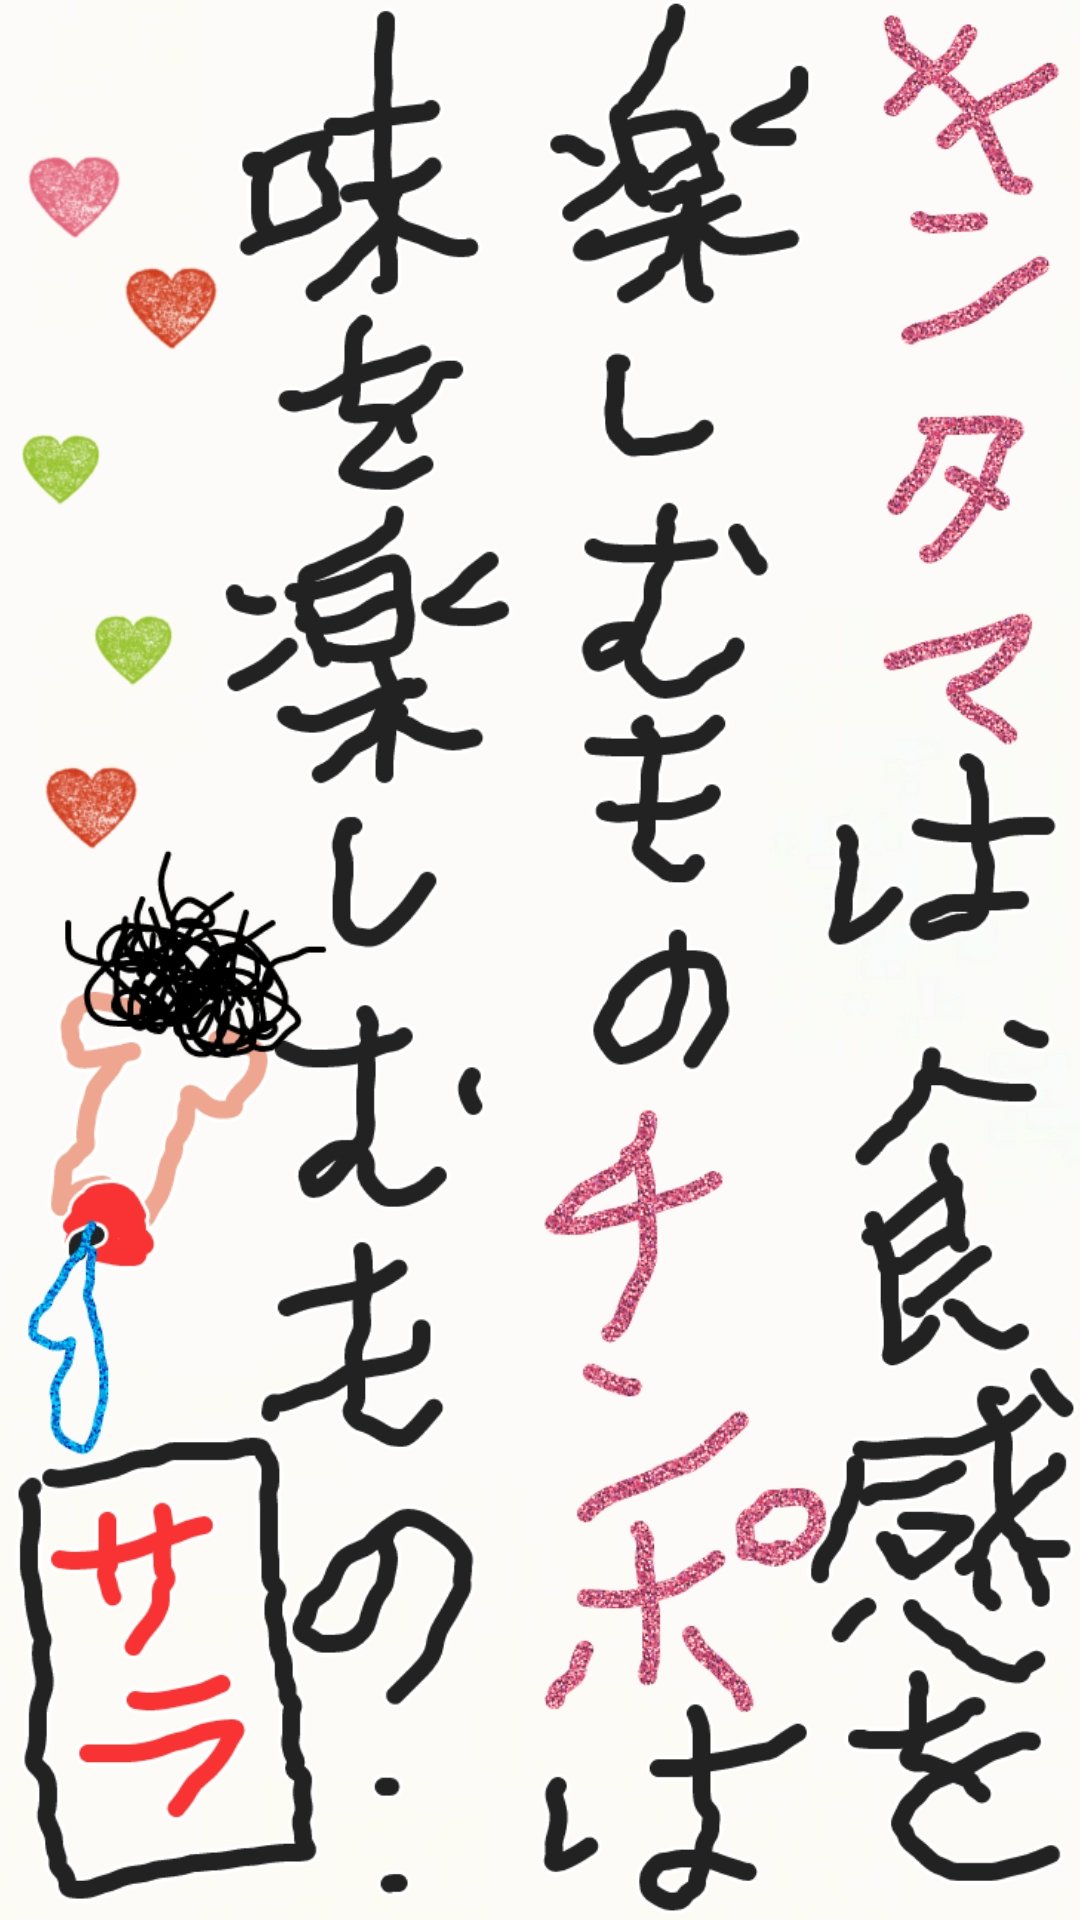 キンタマは食感を
楽しむものチンポは
味を楽しむもの…
サラ